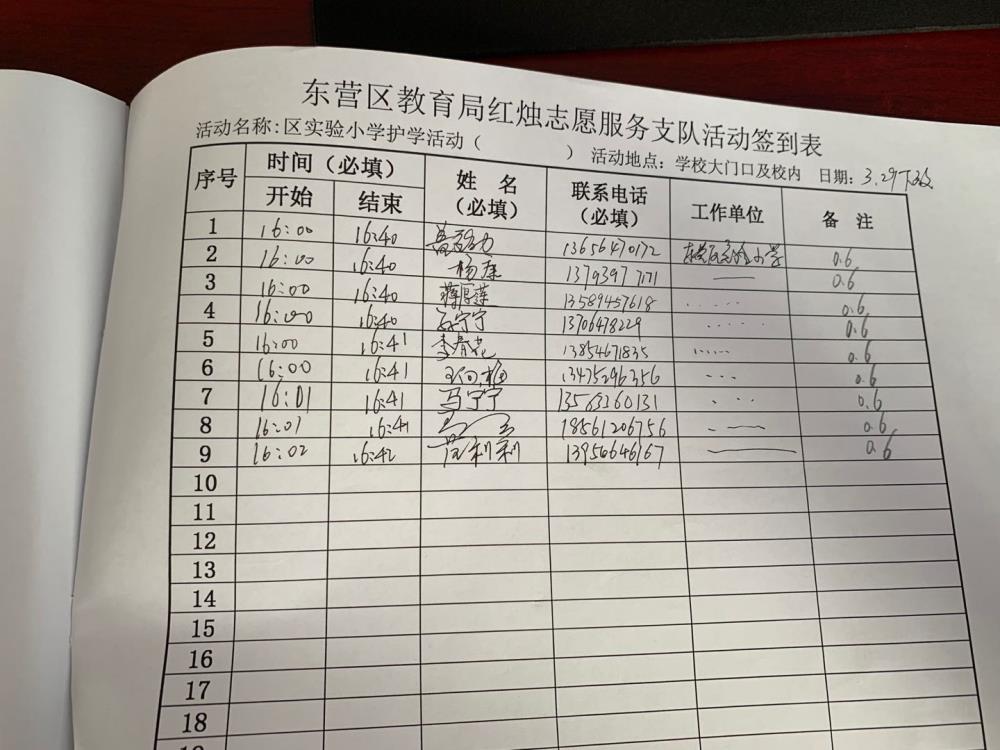 东营区教育局红烛志愿服务支队活动签到表
活动名称:区实验小学护学活动( ) 活动地点:学校大门口及校内 日期:3.29下放
序号 时间(必填) 姓 名(必填) 联系电话(必填) 工作单位 备 注
开始 结束
1 16:00 16:40 13656470172 东营区实验小学 0.6
2 16:00 16:40 杨 13793977171 —— 0.6
3 16:00 16:40 蒋厚莲 13589457618 ..... 0.6
4 16:00 16:40 孙宁宁 13706478229 ..... 0.6
5 16:00 16:41 李春花 13854671835 ..... 0.6
6 16:00 16:41 13475296356 ... 0.6
7 16:01 16:41 马宁宁 13563260131 ... 0.6
8 16:01 16:41 18561206756 —— 0.6
9 16:02 16:42 范利利 13954646167 —— 0.6
10
11
12
13
14
15
16
17
18